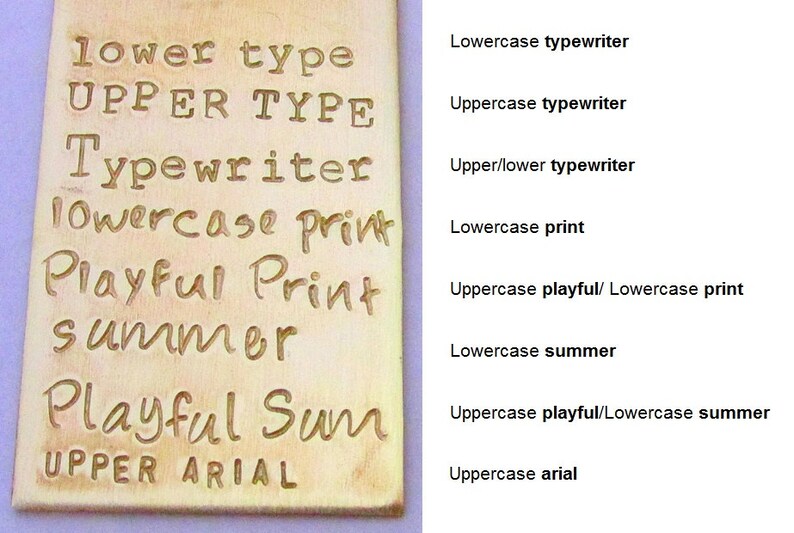 lower type
UPPER TYPE
Typewriter
lowercase print
Playful Print
summer
Playful Sum
UPPER ARIAL
Lowercase typewriter
Uppercase typewriter
Upper/lower typewriter
Lowercase print
Uppercase playful/ Lowercase print
Lowercase summer
Uppercase playful/Lowercase summer
Uppercase arial